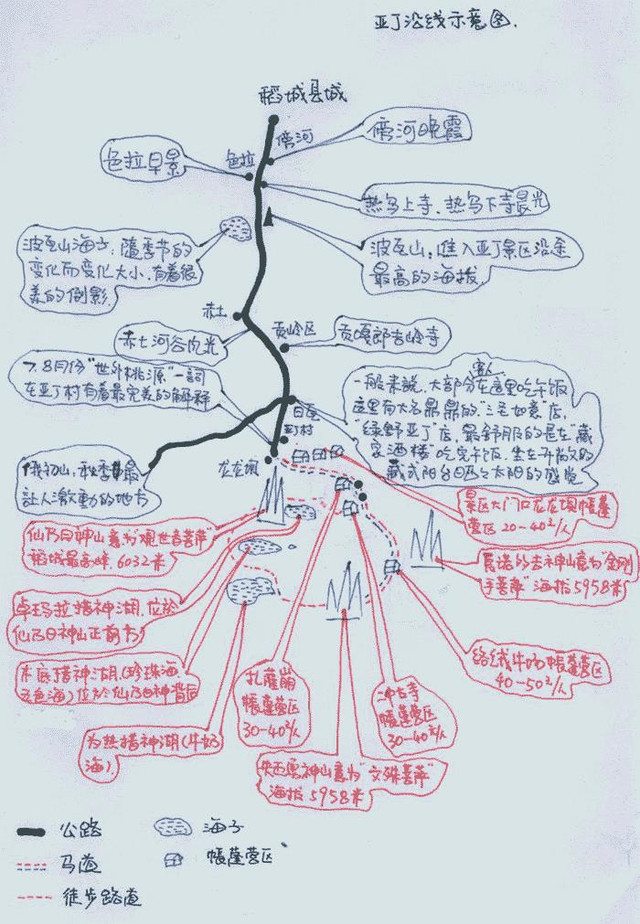 亚丁沿线示意图.
稻城县城
傍河
傍河晚霞
色拉早景
色拉
热乌上寺、热乌下寺晨光
波瓦山海子:随季节的
变化而变化大小、有着很
美的倒影
波瓦山,进入亚丁景区沿途
最高的海拔
赤土
赤土河谷内光
贡岭区
贡嘎郎吉岭寺
7、8月份“世外桃源”一词
在亚丁村有着最完美的解释
日瓦
亚丁村
客人
一般来说,大部分在这里吃午饭
这里有大名鼎鼎的“三圣如意店,
“绿野亚丁”店,最舒服的是在藏
家酒楼吃完午饭,坐在开放的
藏式阳台日西之太阳的感觉
俄初山,秋季最
让人激動的地方
龙龙坝
景区大门口龙龙坝帳蓬
营区20-40元/人
仙乃日神山意为“观世音菩萨”
稻城最高峰,6032米
夏诺多吉神山意为“金刚
手菩萨”海拔5958米
卓玛拉措神湖,位於
仙乃日神山正前方
木底措神湖(珍珠海
五色海)位於仙乃日神背后
为热措神湖(牛奶
海)
扎灌崩
帳蓬营区
30-40元/人
冲古寺
帳蓬营区
30-40元/人
络绒牛场帳蓬营区
40-50元/人
央迈勇神山意为“文殊菩萨”
海拔5958米
公路
海子
马道
帳蓬营区
徒步路道